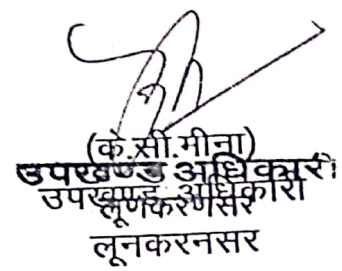 (के.सी.मीना)
उपखण्ड अधिकारी
उपखण्ड अधिकारी
लूणकरणसर
लूनकरनसर